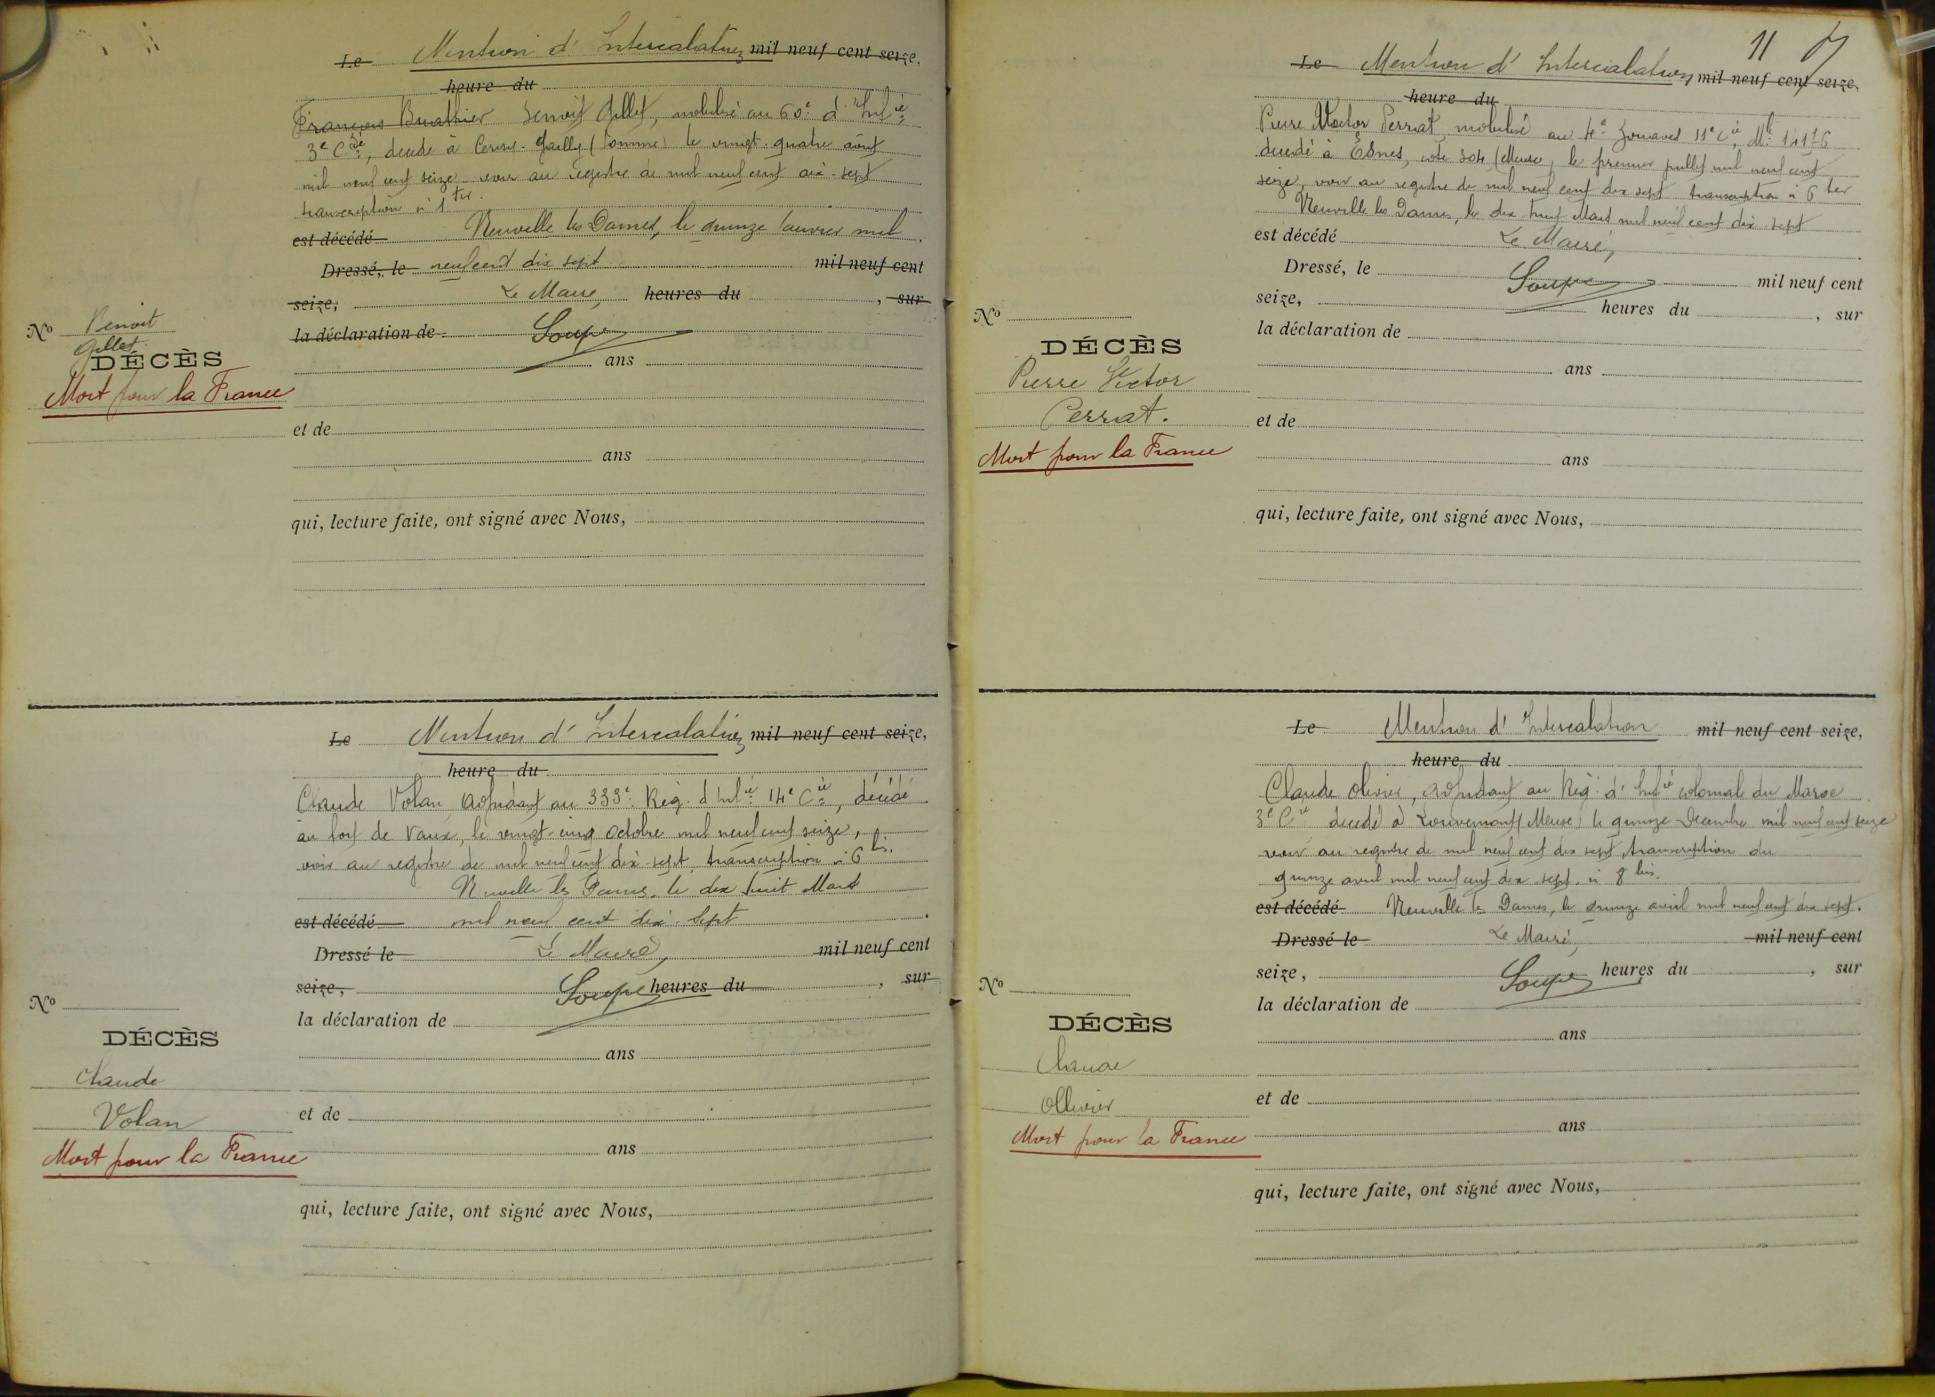 Le Mention d'Intercalation mil neuf cent seize,
heure du
François Buathier Benoit Gillet, mobilisé au 60e d'Infie
3e Cie, décédé à Cerisy-Gailly (Somme) le vingt-quatre août
mil neuf cent seize voir au registre de mil neuf cent dix-sept
transcription n° 1 ter.
est décédé Neuville les Dames, le quinze mil
Dressé, le neuf cent dix sept mil neuf cent
seize, Le Maire, heures du , sur
la déclaration de Soupe
ans
et de
ans
qui, lecture faite, ont signé avec Nous,
No Benoit
Gillet
DÉCÈS
Mort pour la France
Le Mention d'Intercalation mil neuf cent seize,
heure du
Claude Volan, adjudant au 333e Rég. d'Infie 14e Cie, décédé
au fort de Vaux, le vingt-cinq octobre mil neuf cent seize,
voir au registre de mil neuf cent dix-sept, transcription n° 6 bis.
Neuville les Dames, le dix huit Mars
est décédé mil neuf cent dix-sept
Dressé le Le Maire, mil neuf cent
seize, Soupe heures du , sur
la déclaration de
ans
et de
ans
qui, lecture faite, ont signé avec Nous,
No
DÉCÈS
Claude
Volan
Mort pour la France
11
Le Mention d'Intercalation mil neuf cent seize,
heure du
Pierre Victor Perrat, mobilisé au 4e Zouaves 11e Cie, Mle 14176
décédé à Esnes, cote 304 (Meuse), le premier juillet mil neuf cent
seize, voir au registre de mil neuf cent dix sept transcription n° 6 ter
Neuville les Dames, le dix huit Mars mil neuf cent dix sept
est décédé Le Maire,
Dressé, le Soupe mil neuf cent
seize, heures du , sur
la déclaration de
ans
et de
ans
qui, lecture faite, ont signé avec Nous,
No
DÉCÈS
Pierre Victor
Perrat.
Mort pour la France
Le Mention d'Intercalation mil neuf cent seize,
heure du
Claude Olivier, adjudant au Rég. d'Infie coloniale du Maroc
3e Cie décédé à Louvemont (Meuse) le quinze Décembre mil neuf cent seize
voir au registre de mil neuf cent dix sept, transcription du
quinze avril mil neuf cent dix-sept n° 8 bis.
est décédé Neuville les Dames, le quinze avril mil neuf cent dix sept.
Dressé le Le Maire, mil neuf cent
seize, Soupe heures du , sur
la déclaration de
ans
et de
ans
qui, lecture faite, ont signé avec Nous,
No
DÉCÈS
Claude
Ollivier
Mort pour la France